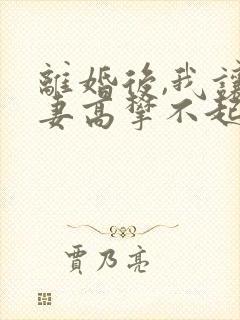 離婚後,我讓
妻高攀不起
賈乃亮